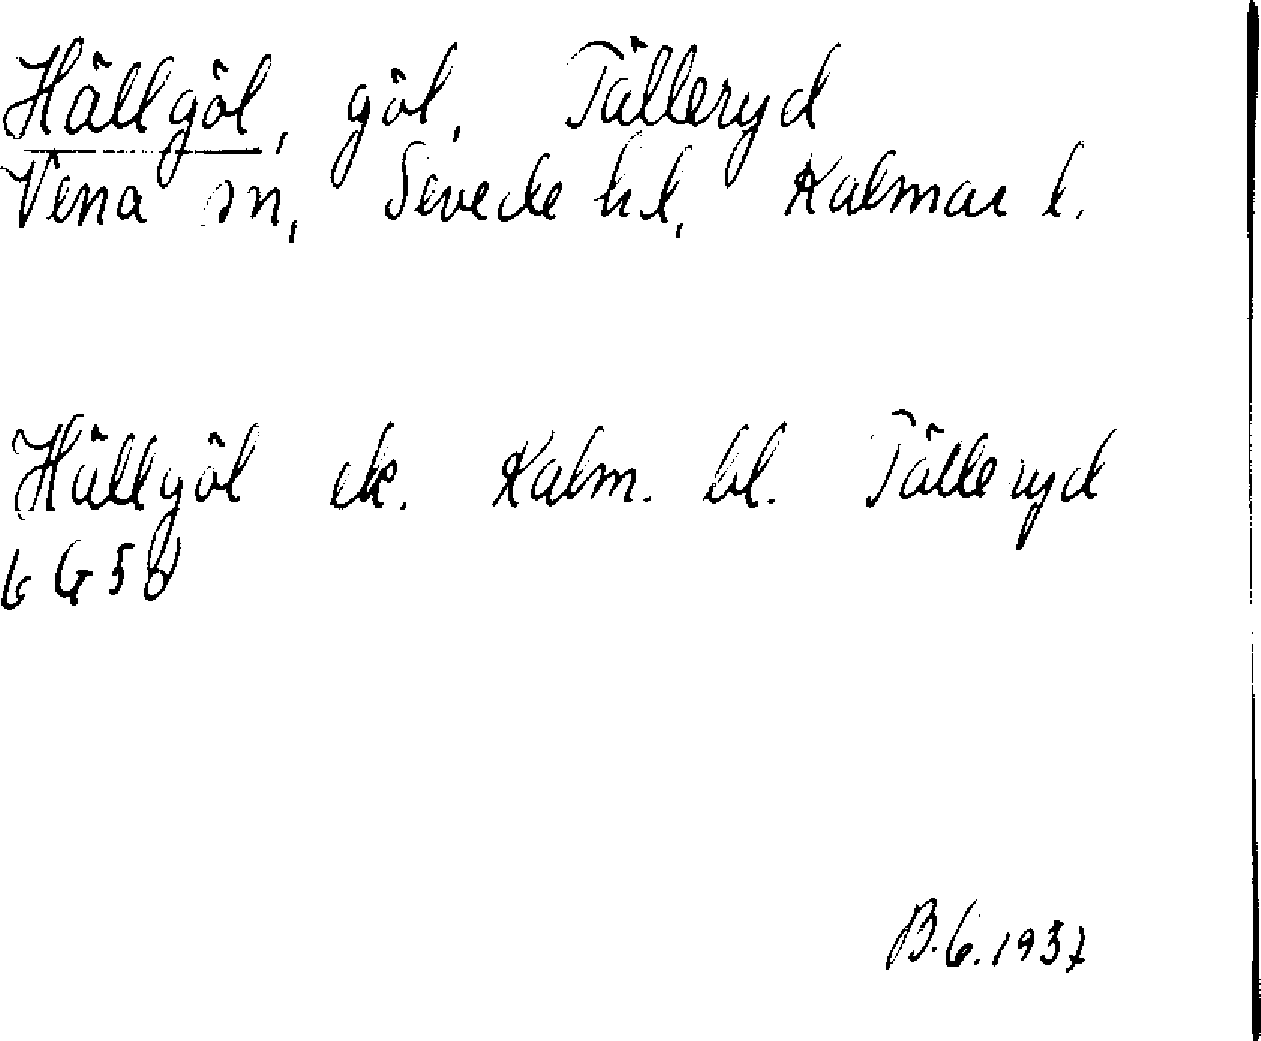 Hällgöl, göl, Tälleryd
Vena sn, Sevede hd, Kalmar l.
Hällgöl ek. Kalm. bl. Tälleryd
6G5b
B.G. 1937